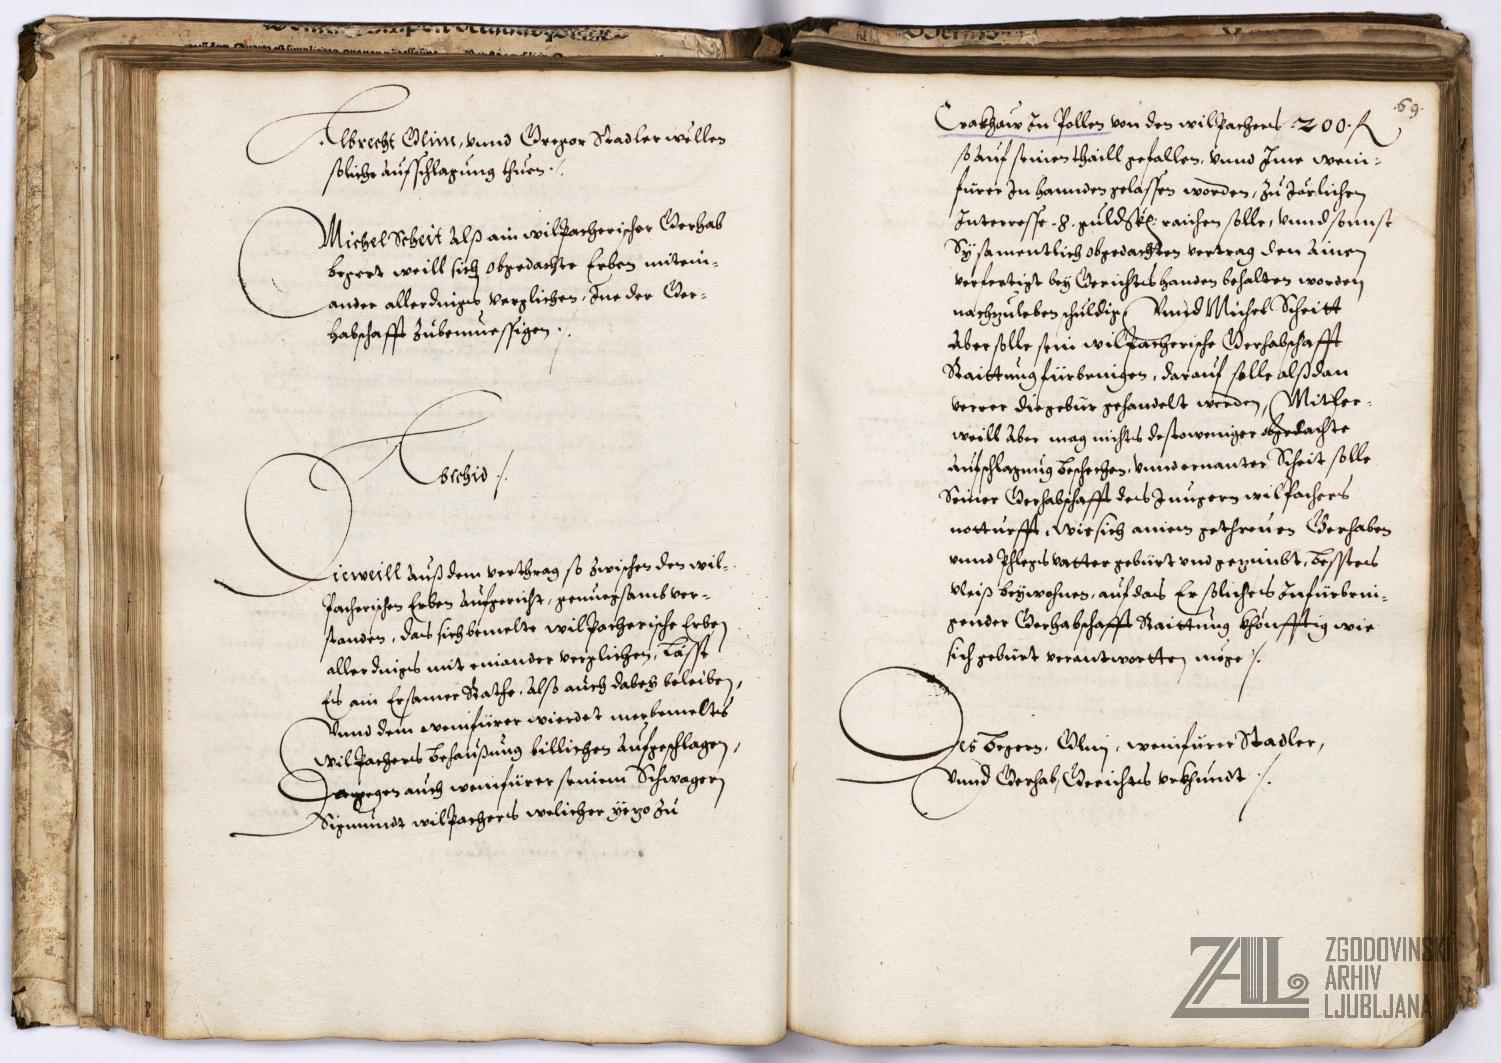 Albrecht Glim, vnnd Gregor Stadler wellen
soliche Aufschlagung thuen ./.
Michel Scheit Alß ain wilPacherischer Gerhab
begert weill sich obgedachte Erben mitein-
ander allerdings verglichen, Ine der Ger-
habschafft zubemuessigen ./.
Abschid ./.
Dieweill Auß dem verthrag so zwischen den wil-
Pacherischen Erben Aufgericht, genuegsamb ver-
standen, das sich bemelte wilPacherische Erben
allerdings mit einander verglichen, Lässt
Es ain Ersamer Rathe, Alß auch dabeÿ beleiben,
Vnnd dem weinfürer wierdet merbemeltes
wilPachers behaußung billichen Aufgeschlagen,
Dargegen auch weinfürer seinem Schwagern
Sigmundt wilPachers welicher yezo zu
69.
Crakhaw In Pollen von den wilPachers 200. fl
so auf seinen thaill gefallen, vnnd Ime wein-
fürer In hannden gelassen worden, zu Järlichen
Interesse .8. guld. raichen solle, vnnd sonnst
Sÿ samentlich obgedachten vertrag den Ainen
verfertigt beÿ Gerichts handen behalten worden
nachzuleben schuldig, Vnnd Michel Scheitt
Aber solle sein wilPacherische Gerhabschafft
Raittung fürbringen, darauf solle alßdan
verrer die gebür gehandelt werden, Mitler-
weill Aber mag nichts destoweniger obgedachte
Aufschlagung beschechen, vnnd ernanter Scheit solle
Seiner Gerhabschafft des Jungern wilPachers
notturfft, wie sich ainem gethreuen Gerhaben
vnnd Phlegs vatter gebürt vnd gezimbt, besstes
vleiß beÿwohnen, auf das Er soliches Infürbrin-
gender Gerhabschafft Raittung khönfftig wie
sich gebürt verantwortten müge ./.
Des begern, Glim, weinfürer Stadler,
vnnd Gerhab, Gerichts vrkhundt ./.
ZAL
ZGODOVINSKI
ARHIV
LJUBLJANA